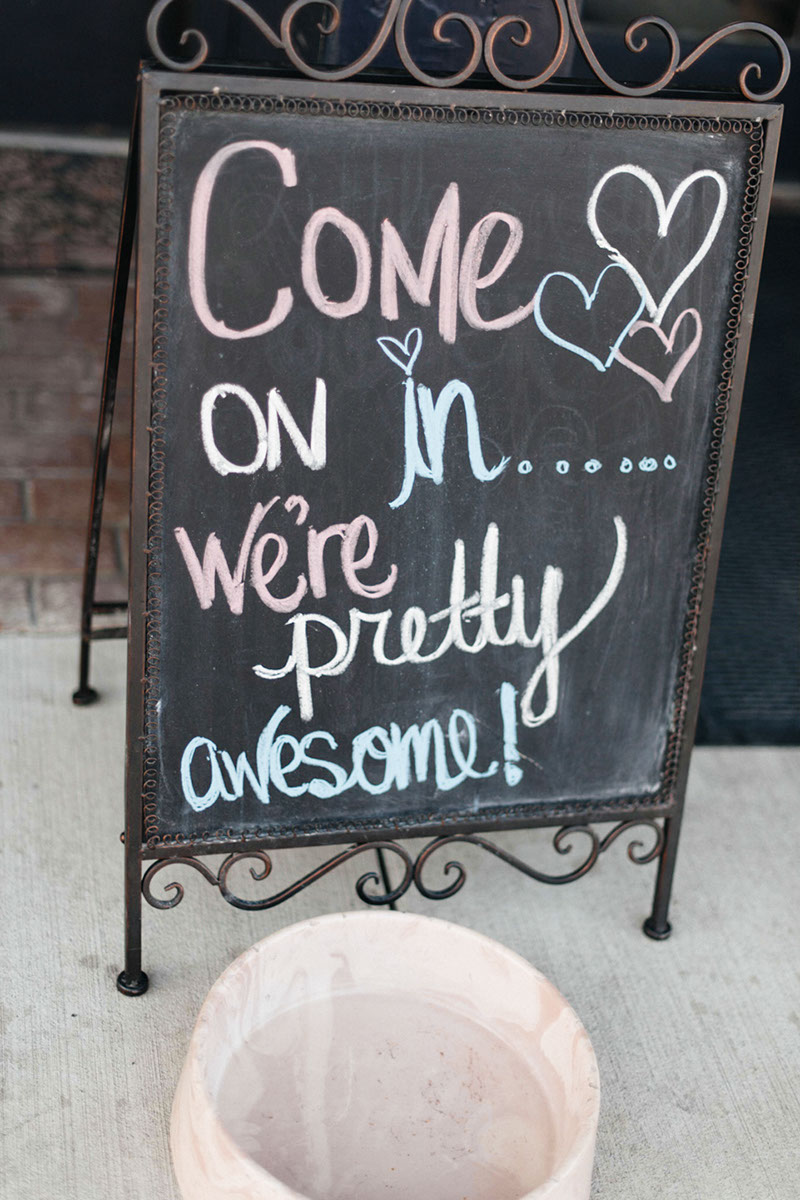 Come
on in.......
We're
pretty
awesome!